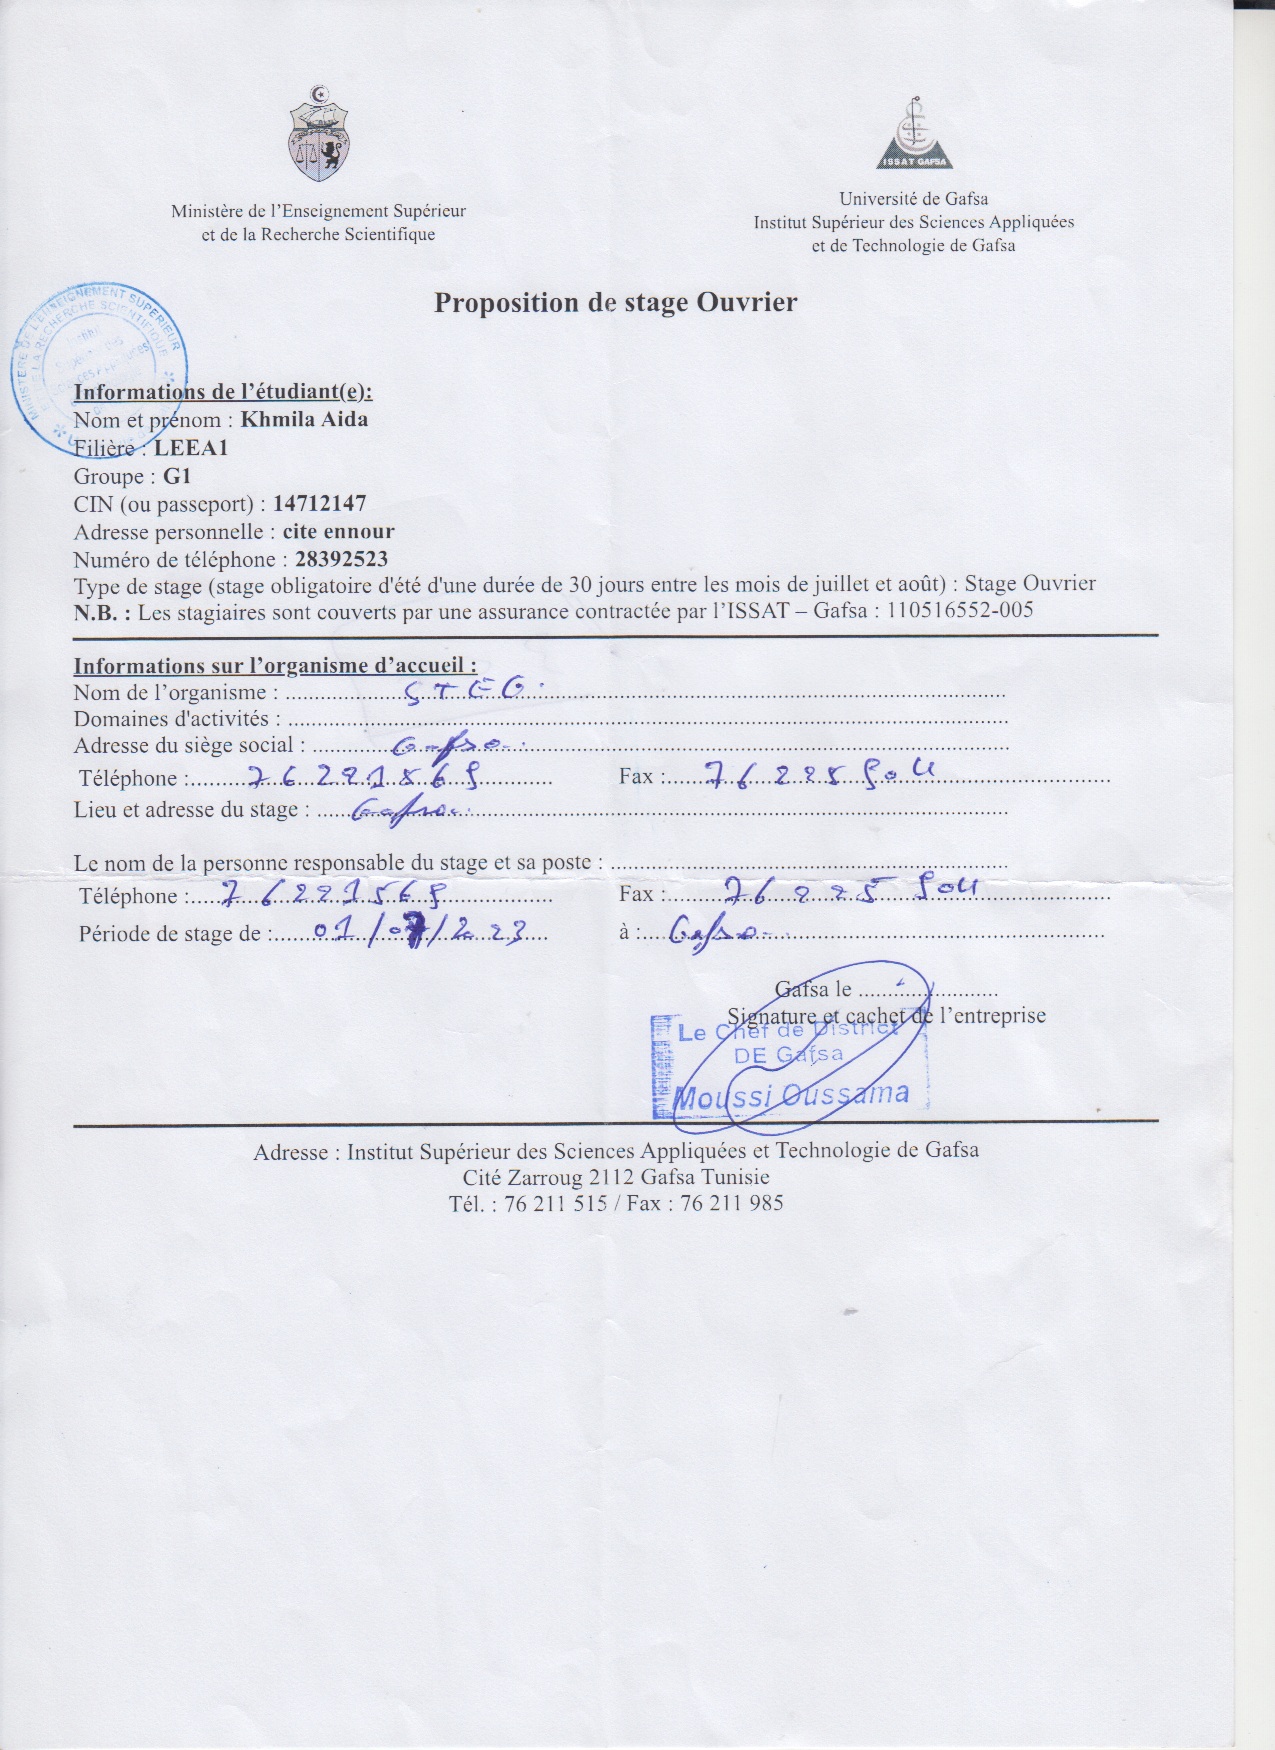 ISSAT GAFSA
Ministère de l'Enseignement Supérieur
et de la Recherche Scientifique
Université de Gafsa
Institut Supérieur des Sciences Appliquées
et de Technologie de Gafsa
MINISTERE DE L'ENSEIGNEMENT SUPERIEUR
DE LA RECHERCHE SCIENTIFIQUE
Proposition de stage Ouvrier
Informations de l'étudiant(e):
Nom et prénom : Khmila Aida
Filière : LEEA1
Groupe : G1
CIN (ou passeport) : 14712147
Adresse personnelle : cite ennour
Numéro de téléphone : 28392523
Type de stage (stage obligatoire d'été d'une durée de 30 jours entre les mois de juillet et août) : Stage Ouvrier
N.B. : Les stagiaires sont couverts par une assurance contractée par l'ISSAT – Gafsa : 110516552-005
Informations sur l'organisme d'accueil :
Nom de l'organisme : STEG
Domaines d'activités :
Adresse du siège social : Gafsa
Téléphone : 76221569 Fax : 76 225 904
Lieu et adresse du stage : Gafsa
Le nom de la personne responsable du stage et sa poste :
Téléphone : 76221569 Fax : 76 225 904
Période de stage de : 01/07/2023 à : Gafsa
Gafsa le
Signature et cachet de l'entreprise
Le Chef de District
DE Gafsa
Moussi Oussama
Adresse : Institut Supérieur des Sciences Appliquées et Technologie de Gafsa
Cité Zarroug 2112 Gafsa Tunisie
Tél. : 76 211 515 / Fax : 76 211 985